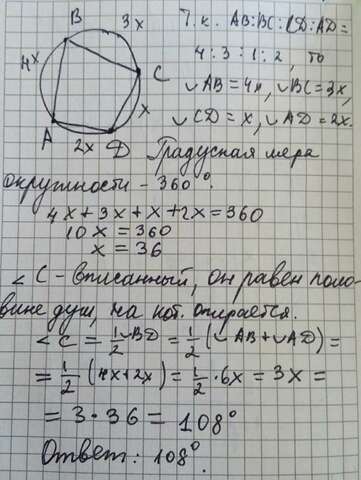 B 3x Т.к. AB:BC:CD:AD=
4x 4:3:1:2, то
C ◡AB=4x, ◡BC=3x,
x ◡CD=x, ◡AD=2x.
A 2x D Градусная мера
окружности - 360°.
4x+3x+x+2x=360
10x=360
x=36
∠C - вписанный, он равен поло-
вине дуги, на кот. опирается.
∠C = 1/2 ◡BD = 1/2 (◡AB+◡AD) =
= 1/2 (4x+2x) = 1/2 · 6x = 3x =
= 3 · 36 = 108°
Ответ: 108°.